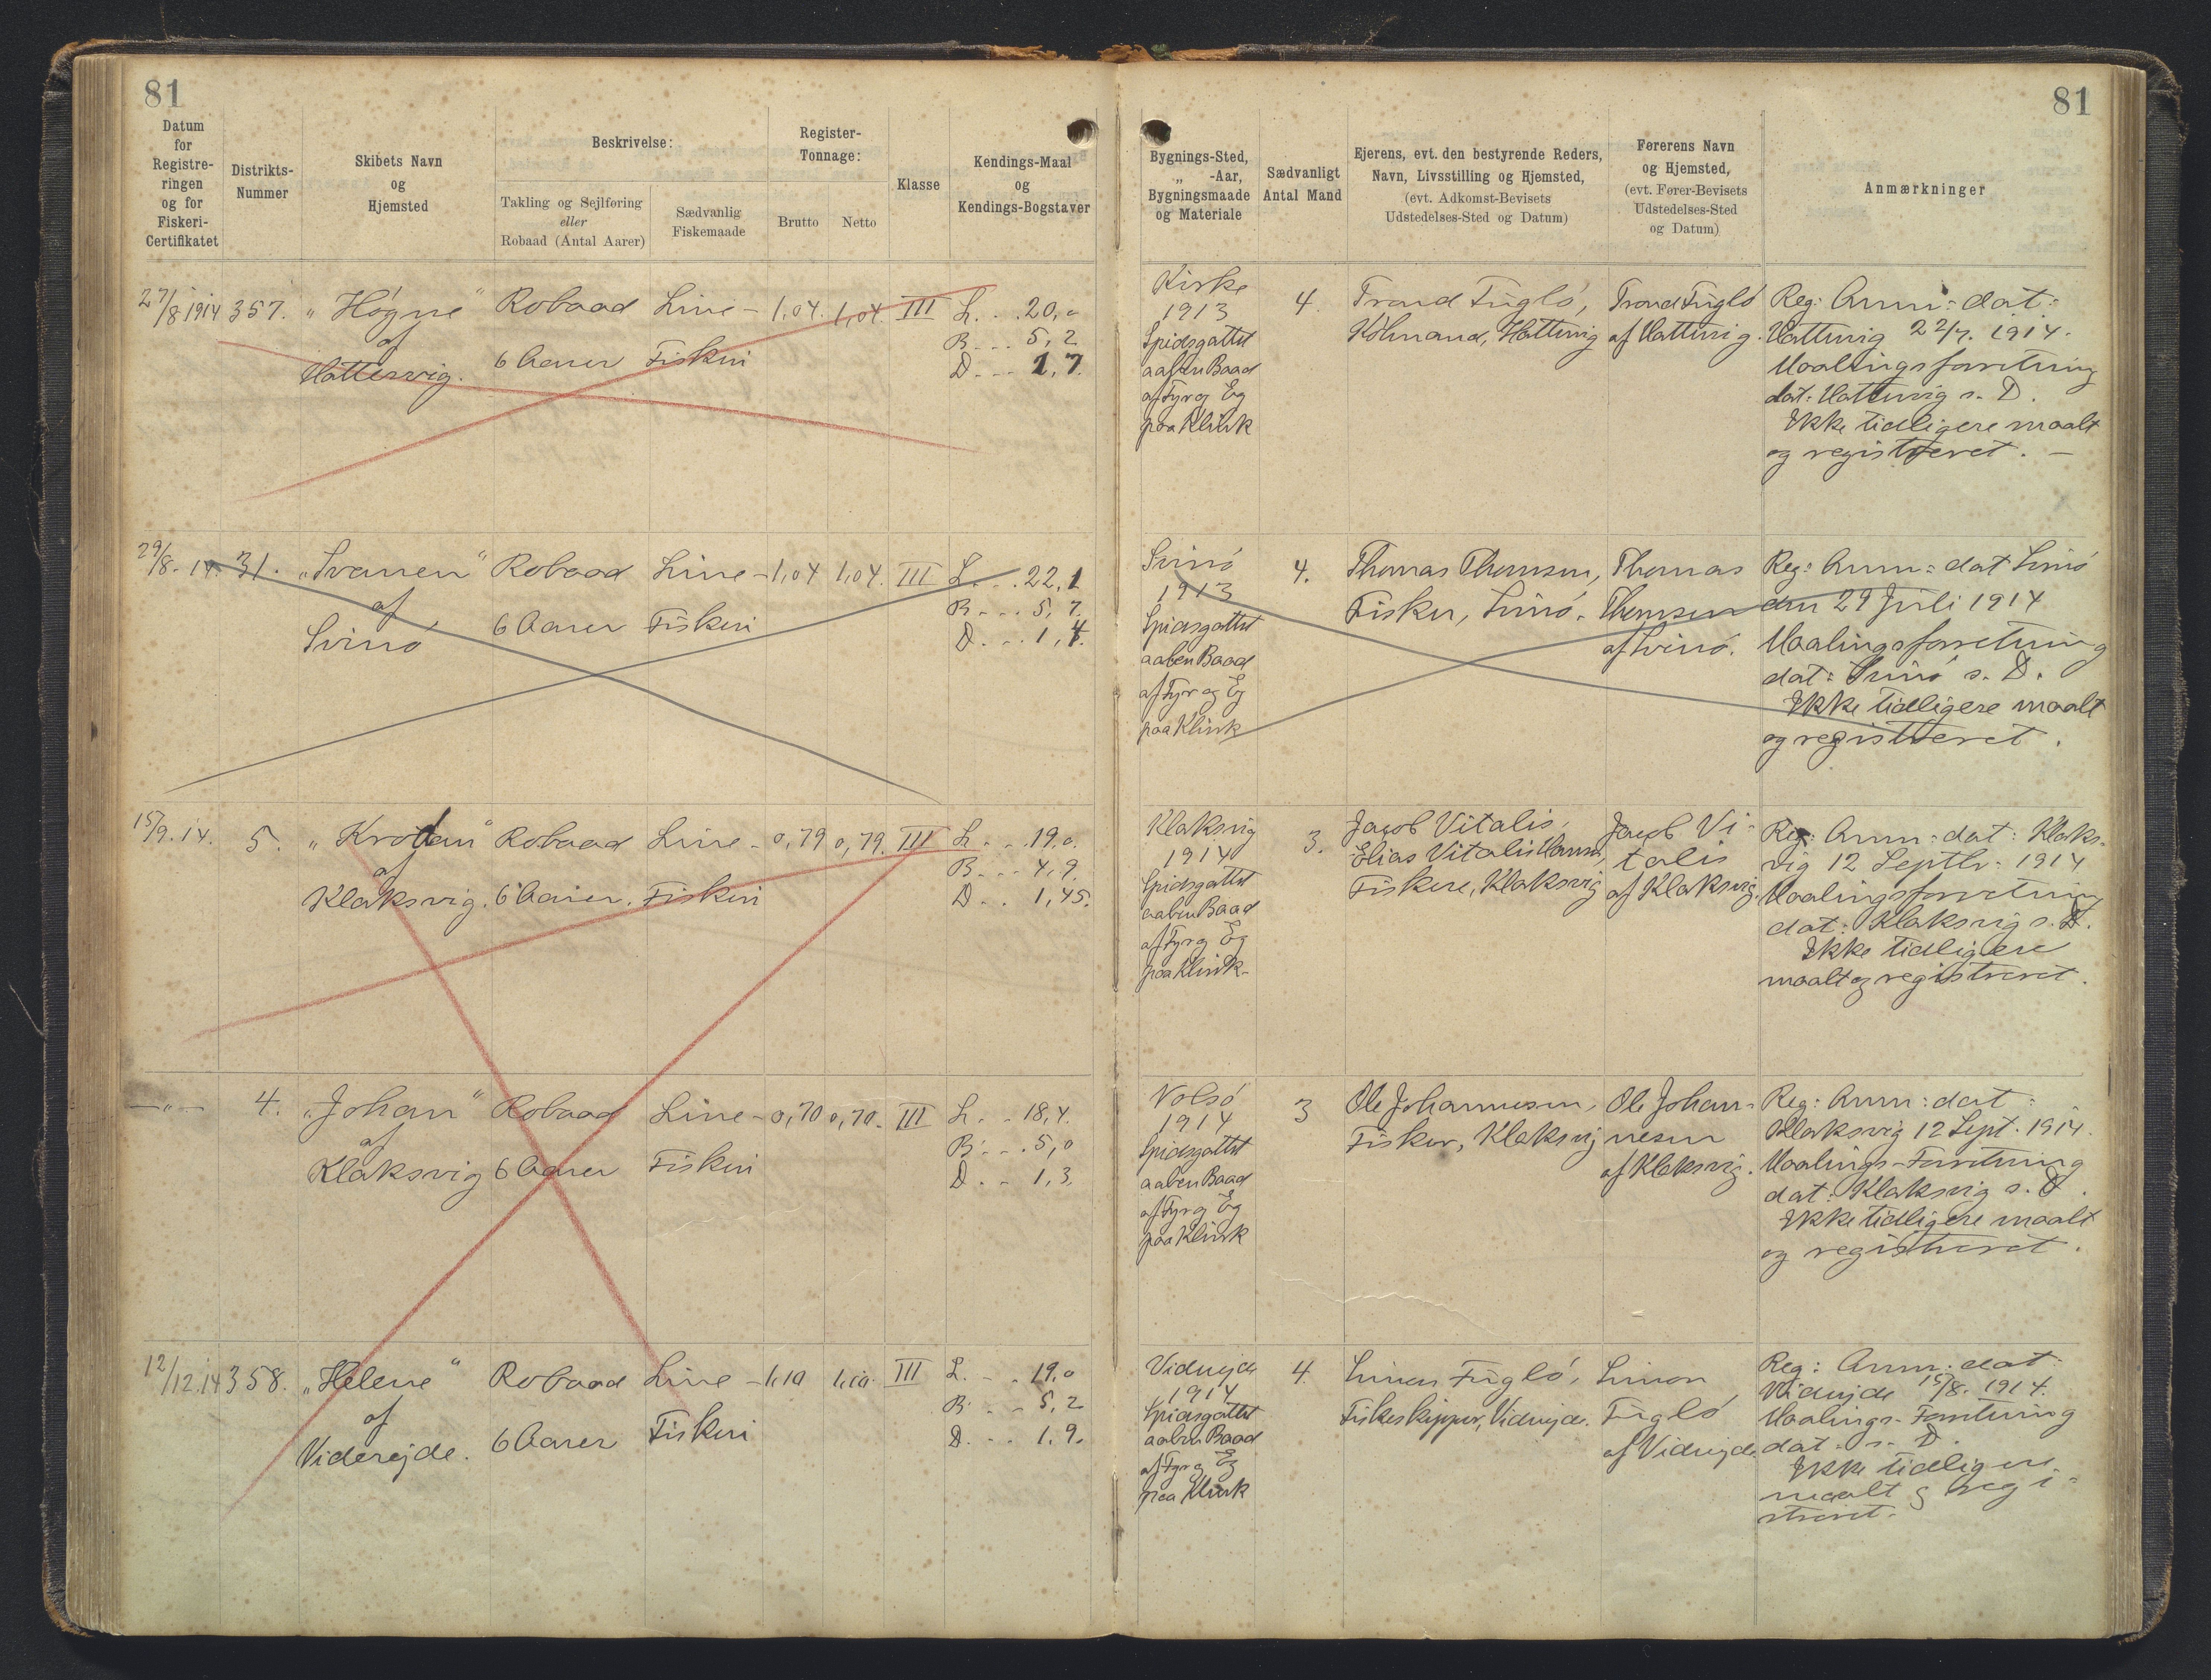 81
81
Datum
for
Registre-
ringen
og for
Fiskeri-
Certifikatet
Distrikts-
Nummer
Skibets Navn
og
Hjemsted
Beskrivelse:
Takling og Sejlføring
eller
Robaad (Antal Aarer)
Sædvanlig
Fiskemaade
Register-
Tonnage:
Brutto
Netto
Klasse
Kendings-Maal
og
Kendings-Bogstaver
Bygnings-Sted,
„ -Aar,
Bygningsmaade
og Materiale
Sædvanligt
Antal Mand
Ejerens, evt. den bestyrende Reders,
Navn, Livsstilling og Hjemsted,
(evt. Adkomst-Bevisets
Udstedelses-Sted og Datum)
Førerens Navn
og Hjemsted,
(evt. Fører-Bevisets
Udstedelses-Sted
og Datum)
Anmærkninger
27/8 1914
357.
„Høgne“
af
Hattervig.
Robaad
6 Aarer
Line-
Fiskeri
1,04.
1,04.
III
L. . . 20,0
B. . . 5,2
D. . . 1,7.
Kirke
1913
Spidsgattet
aaben Baad
af Fyr og Eg
paa Klink
4.
Trond Fuglø,
Hattervig
Trond Fuglø
af Hattervig.
Reg: Anm: dat:
Hattervig 22/7. 1914.
Maalingsforretning
dat: Hattervig s. D.
Ikke tidligere maalt
og registreret. —
29/8. 14.
31.
„Svanen“
af
Svinø
Robaad
6 Aarer
Line-
Fiskeri
1,04
1,04.
III
L. . . 22,1
B. . . 5,7.
D. . . 1,4.
Svinø
1913
Spidsgattet
aaben Baad
af Fyr og Eg
paa Klink
4.
Thomas Thomsen,
Fisker, Svinø.
Thomas
Thomsen
af Svinø.
Reg: Anm: dat Svinø
den 29 Juli 1914
Maalingsforretning
dat: Svinø s. D.
Ikke tidligere maalt
og registreret.
15/9. 14.
5.
af
Klaksvig.
Robaad
6 Aarer.
Line-
Fiskeri
0,79
0,79.
III
L. . . 19,0.
B. . . 4,9.
D. . . 1,45.
Klaksvig
1914
Spidsgattet
aaben Baad
af Fyr og Eg
paa Klink-
3.
Jacob Vitalis,
Elias Vitalis Hansen,
Fiskere, Klaksvig
Jacob Vi-
talis
af Klaksvig.
Reg: Anm: dat: Klaks-
vig 12 Septbr. 1914
Maalingsforretning
dat: Klaksvig s. D.
Ikke tidligere
maalt og registreret.
—„—
4.
„Johan“
af
Klaksvig
Robaad
6 Aarer
Line-
Fiskeri
0,70
0,70.
III
L. . . 18,4.
B. . . 5,0
D. . . 1,3.
Nolsø
1914
Spidsgattet
aaben Baad
af Fyr og Eg
paa Klink
3
Ole Johannesen,
Fisker, Klaksvig
Ole Johan-
nesen
af Klaksvig.
Reg: Anm: dat:
Klaksvig 12 Sept. 1914.
Maalings-Forretning
dat: Klaksvig s. D.
Ikke tidligere maalt
og registreret.
12/12. 14
358.
„Helene“
af
Viderejde.
Robaad
6 Aarer
Line-
Fiskeri
1,10
1,10.
III
L. . . 19,0
B. . . 5,2
D. . . 1,9.
Viderejde
1914
Spidsgattet
aaben Baad
af Fyr og Eg
paa Klink
4.
Simon Fuglø,
Fiskeskipper, Viderejde.
Simon
Fuglø
af Viderejde.
Reg: Anm: dat
Viderejde 15/8. 1914.
Maalings-Forretning
dat. s. D.
Ikke tidligere
maalt og regi-
streret.